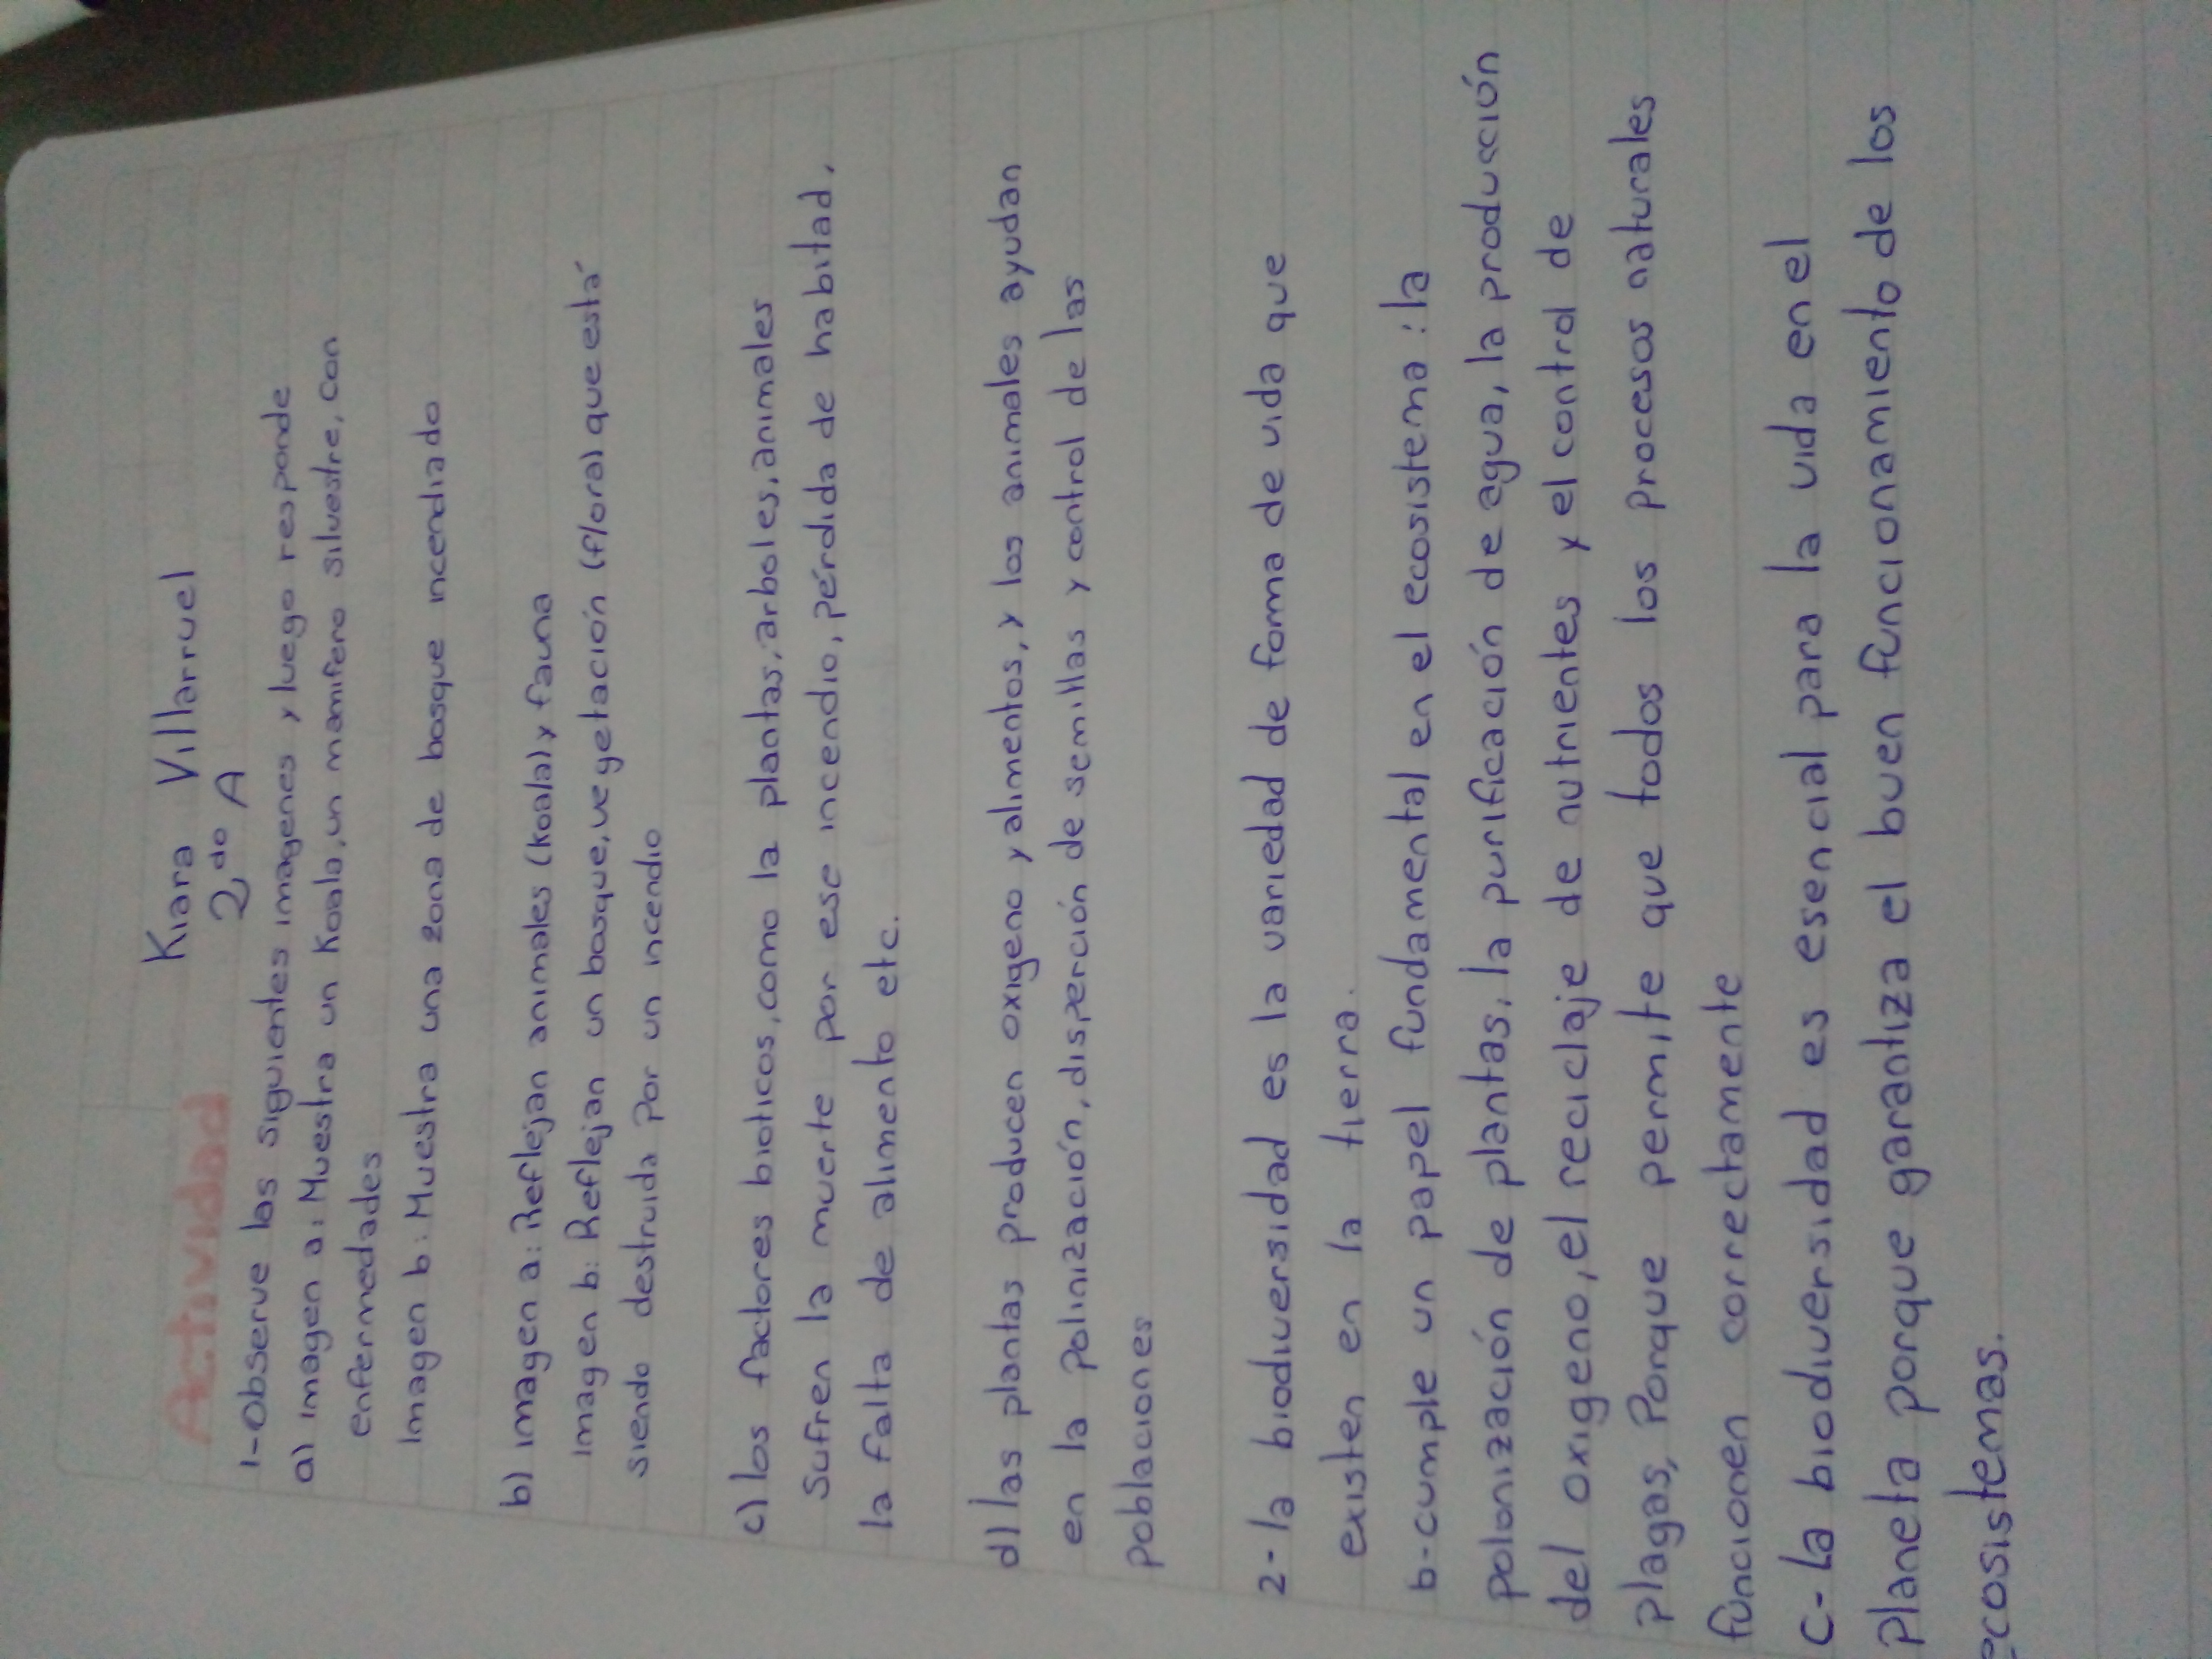 Kiara Villarruel
Actividad 2,do A
1-Observe las siguientes imagenes y luego responde
a) imagen a: Muestra un Koala, un mamifero silvestre, con
enfermedades
Imagen b: Muestra una zona de bosque incendiado
b) imagen a: Reflejan animales (koala) y fauna
imagen b: Reflejan un bosque, vegetación (flora) que está
siendo destruida por un incendio
c) los factores bioticos, como la plantas, arboles, animales
sufren la muerte por ese incendio, pérdida de habitad,
la falta de alimento etc.
d) las plantas producen oxigeno y alimentos, y los animales ayudan
en la polinización, disperción de semillas y control de las
poblaciones
2- la biodiversidad es la variedad de forma de vida que
existen en la tierra.
b-cumple un papel fundamental en el ecosistema: la
polonización de plantas, la purificación de agua, la producción
del oxigeno, el reciclaje de nutrientes y el control de
plagas, Porque permite que todos los procesos naturales
funcionen correctamente
C- La biodiversidad es esencial para la vida en el
Planeta porque garantiza el buen funcionamiento de los
ecosistemas.